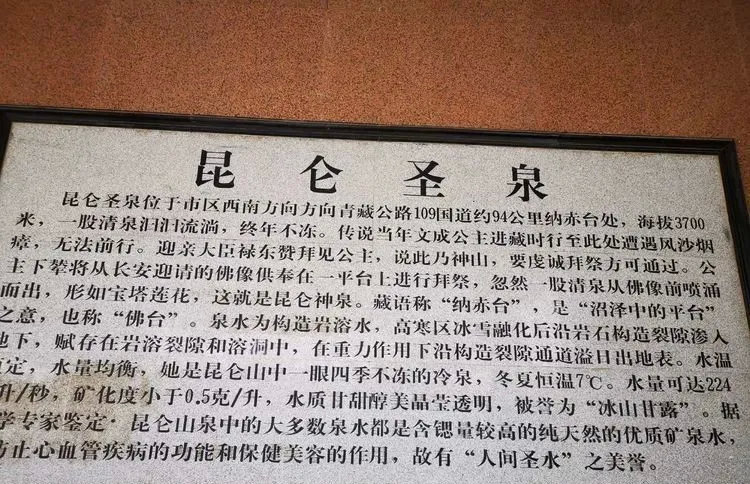 昆仑圣泉
昆仑圣泉位于市区西南方向方向青藏公路109国道约94公里纳赤台处，海拔3700
米，一股清泉汩汩流淌，终年不冻。传说当年文成公主进藏时行至此处遭遇风沙烟
瘴，无法前行。迎亲大臣禄东赞拜见公主，说此乃神山，要虔诚拜祭方可通过。公
主下辇将从长安迎请的佛像供奉在一平台上进行拜祭，忽然一股清泉从佛像前喷涌
而出，形如宝塔莲花，这就是昆仑神泉。藏语称“纳赤台”，是“沼泽中的平台”
之意，也称“佛台”。泉水为构造岩溶水，高寒区冰雪融化后沿岩石构造裂隙渗入
地下，赋存在岩溶裂隙和溶洞中，在重力作用下沿构造裂隙通道溢目出地表。水温
恒定，水量均衡，她是昆仑山中一眼四季不冻的冷泉，冬夏恒温7℃。水量可达224
升/秒，矿化度小于0.5克/升，水质甘甜醇美晶莹透明，被誉为“冰山甘露”。据
学专家鉴定·昆仑山泉中的大多数泉水都是含锶量较高的纯天然的优质矿泉水，
防止心血管疾病的功能和保健美容的作用，故有“人间圣水”之美誉。